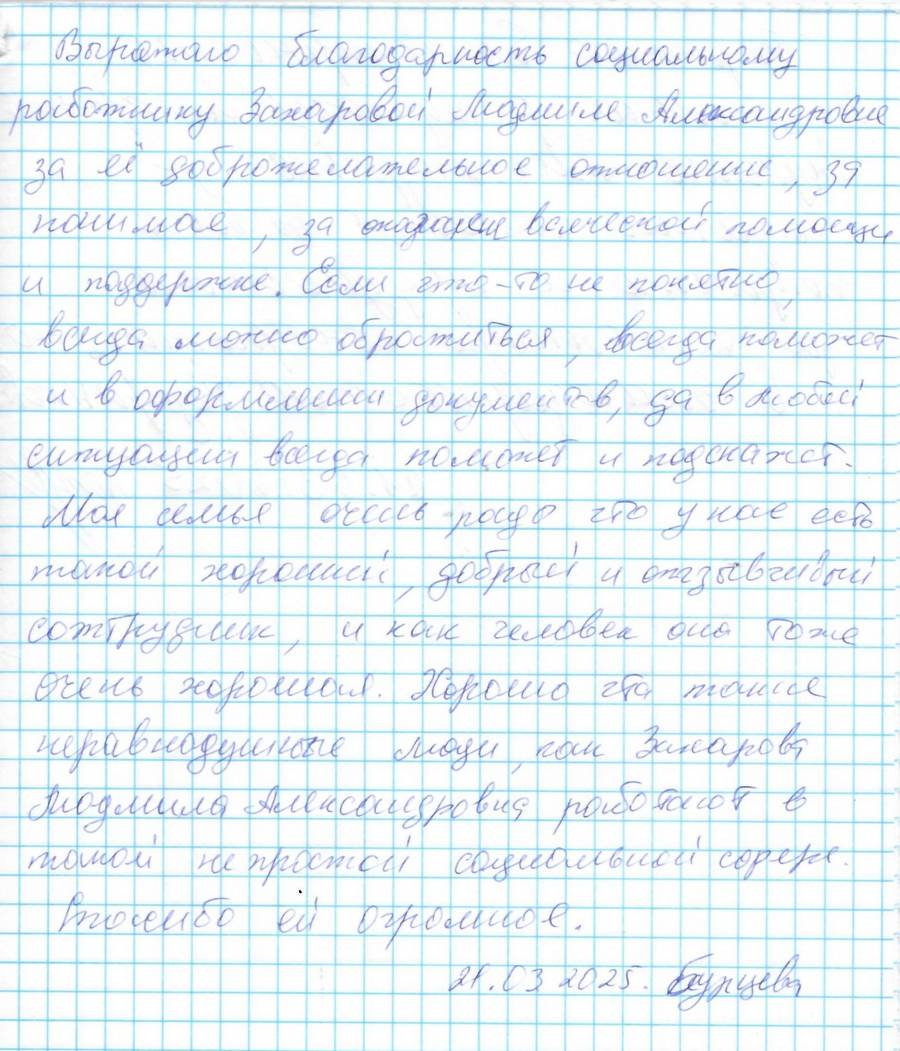 Выражаю благодарность социальному
работнику Захаровой Людмиле Александровне
за её доброжелательное отношение, за
понимае, за оказание всяческой помощи
и поддержке. Если что-то не понятно,
всегда можно обратиться, всегда поможет
и в оформлении документов, да в любой
ситуации всегда поможет и подскажет.
Моя семья очень рада что у нас есть
такой хороший, добрый и отзывчивый
сотрудник, и как человек она тоже
очень хорошая. Хорошо что такие
неравнодушные люди, как Захарова
Людмила Александровна работают в
такой непростой социальной сфере.
Спасибо ей огромное.
21.03.2025. Бурцева